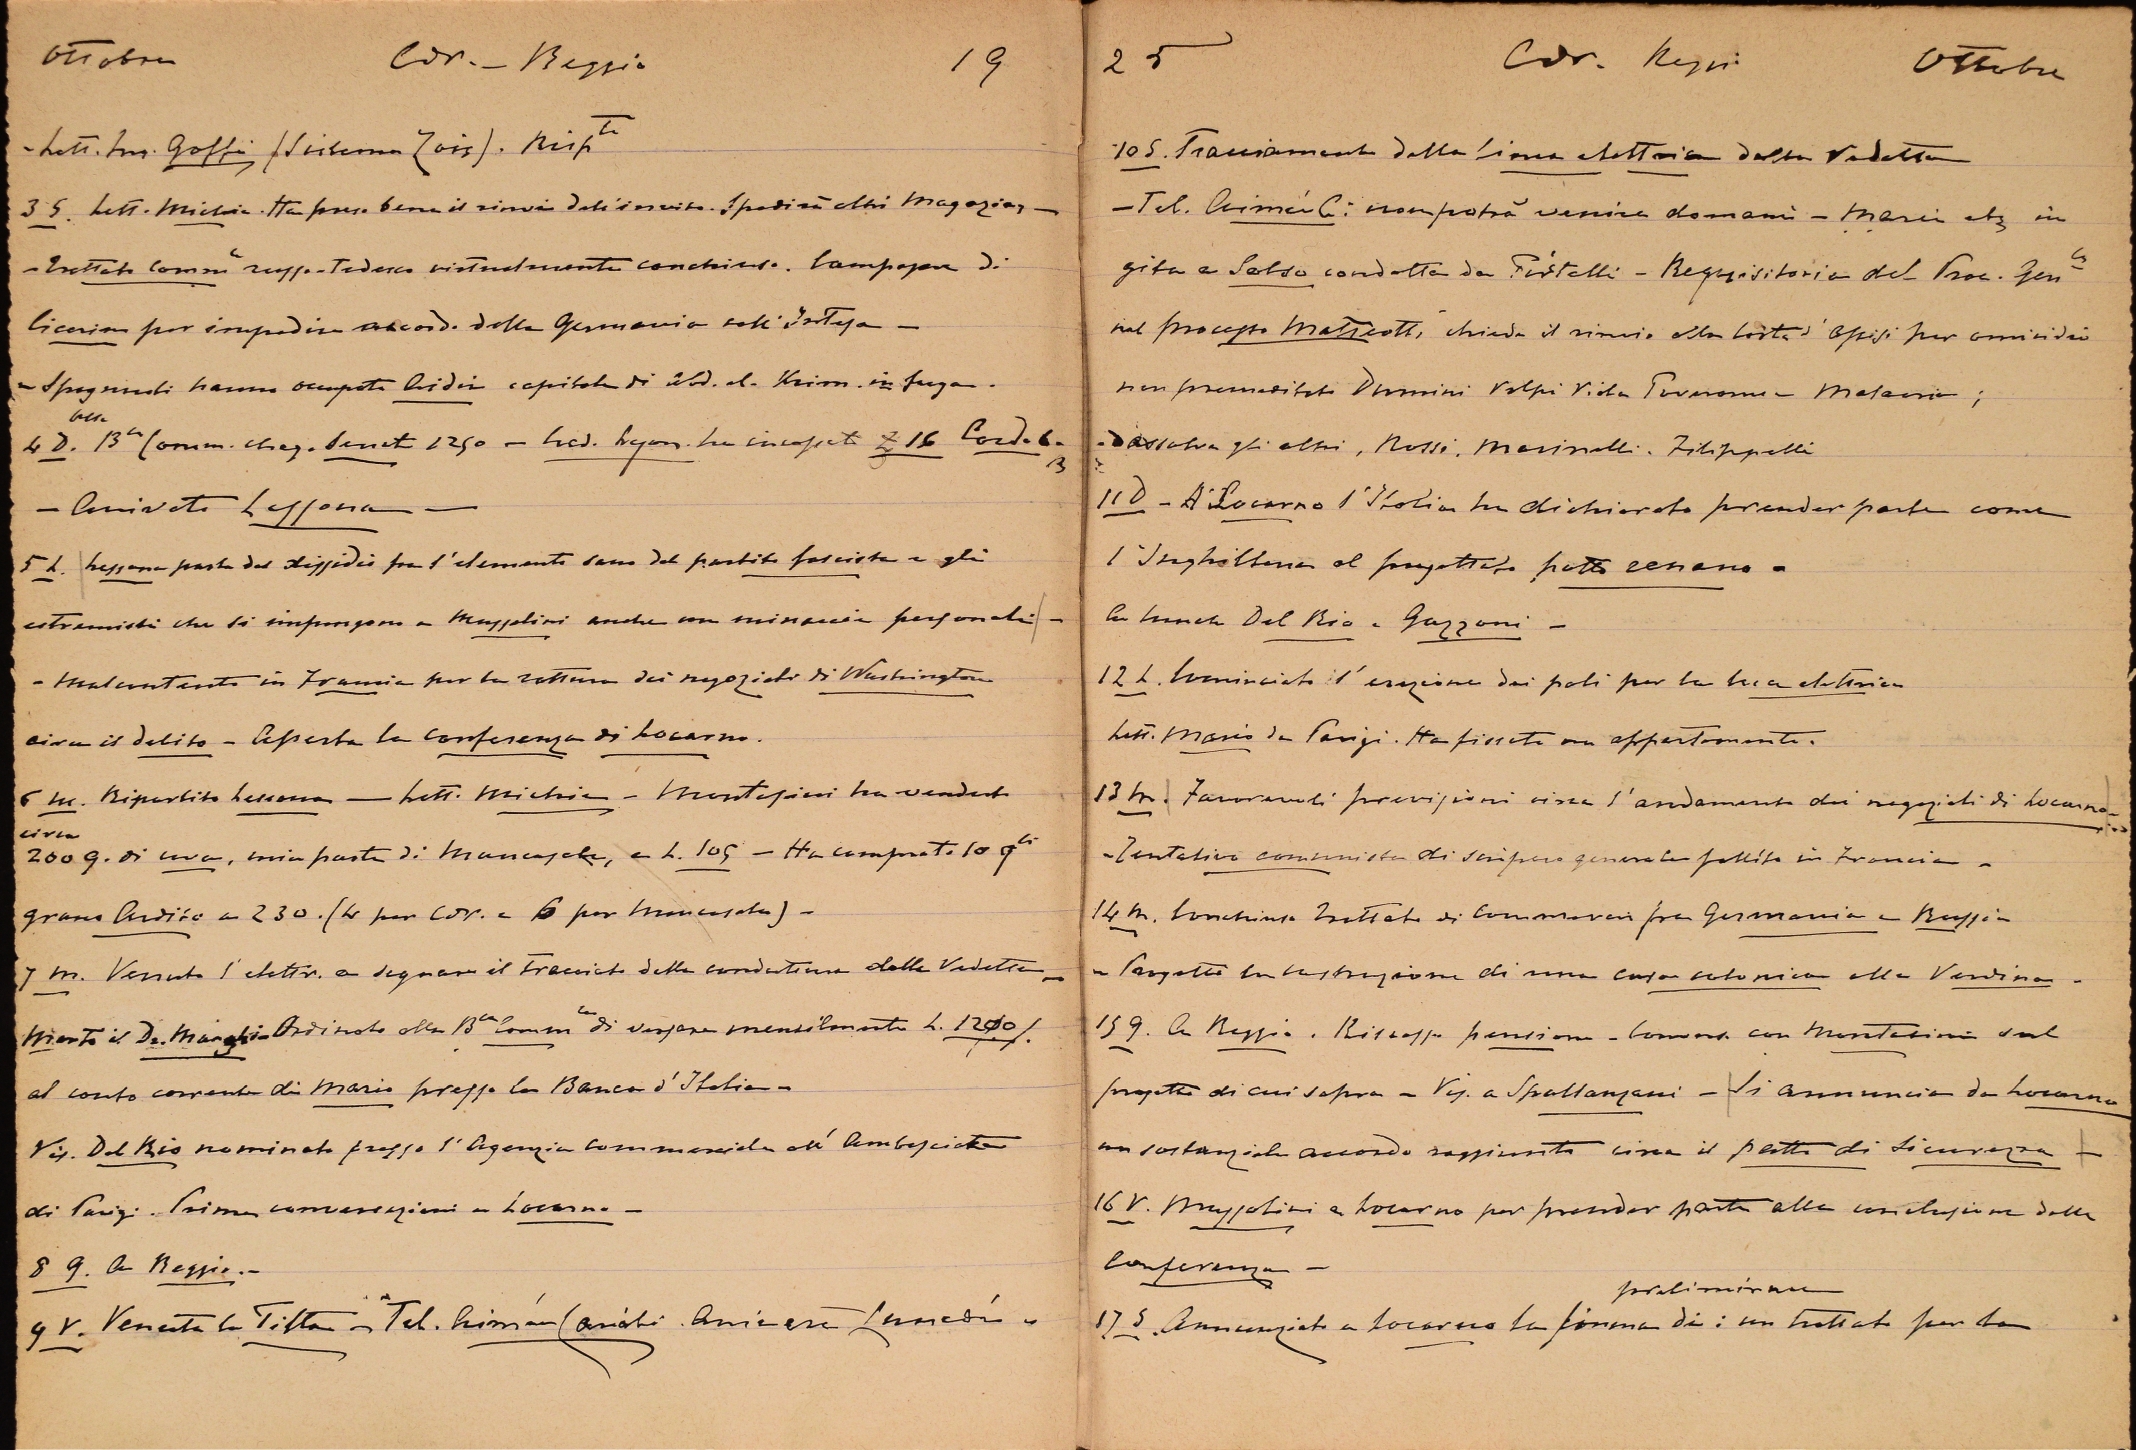 Ottobre Cdr. - Reggio 19
- Lett. Ing. Goffi (Sistema Zois). Rispte
3 S. Lett. Michia. Ha preso bene il rinvio dell'invito. Spedirà altri
- Trattato commle russo-tedesco virtualmente conchiuso. Campagna di
Cicerin per impedire accordo della Germania coll'Intesa -
- Spagnuoli hanno occupato Aidir capitale di Abd. el. Krim. in fuga.
alla
4 D. Ba Comm. cheq. Senato 1250 - Cred. Lyon. ha incassato £ 16
- Arrivato Lessona -
5 L. Lessona parla del dissidio fra l'elemento sano del partito fascista e gli
estremisti che si impongono a Mussolini anche con minaccie personali -
- Malcontento in Francia per la rottura dei negoziati di Washington
circa il debito - Aperta la conferenza di Locarno.
6 M. Ripartito Lessona - Lett. Michia - Montesini ha venduto
circa
200 q. di uva, mia parte di Mancasale, a L. 105 - Ha comprato 10 qli
grano Ardito a 230. (4 per Cdr. e 6 per Mancasale) -
7 M. Venuto l'elettr. a segnare il tracciato della conduttura della Vedetta -
Morto il Dr. - Ordinato alla Bca Commle di versare mensilmente L. 1200
al conto corrente di Mario presso la Banca d'Italia -
Vis. Del Rio nominato presso l'Agenzia commerciale all'Ambasciata
di Parigi. Prime conversazioni a Locarno -
8 G. A Reggio. -
9 V. Venuta la - Tel. Aimée Arriverà Lunedì -
25 Cdr. Reggio Ottobre
10 S. Tracciamento della linea elettrica della Vedetta
- Tel. Aimée non potrà venire domani - Maria etc in
gita a Salso condotta da - Requisitoria del Proc. Genle
nel processo Matteotti, chiede il rinvio alla Corte d'Assisi per omicidio
non premeditato Dumini Volpi Viola Poveromo e Malacria;
assolve gli altri, Rossi. Marinelli. Filippelli
11 D - A Locarno l'Italia ha dichiarato prender parte come
l'Inghilterra al progettato patto renano -
A lunch Del Rio e Gazzoni -
12 L. Cominciato l'erezione dei pali per la luce elettrica
Lett. Mario da Parigi. Ha fissato un appartamento.
13 M. Favorevoli previsioni circa l'andamento dei negoziati di Locarno
- Tentativo comunista di sciopero generale fallito in Francia -
14 M. Conchiuso Trattato di commercio fra Germania e Russia
- Progetto la costruzione di una casa colonica alla Verdina -
15 G. A Reggio. Riscosso pensione - Convers. con Montesini sul
progetto di cui sopra - Vis. a Spallanzani - Si annuncia da Locarno
un sostanziale accordo raggiunto circa il patto di sicurezza -
16 V. Mussolini a Locarno per prender parte alla conclusione della
Conferenza -
preliminare
17 S. Annunziata a Locarno la firma di: un trattato per la